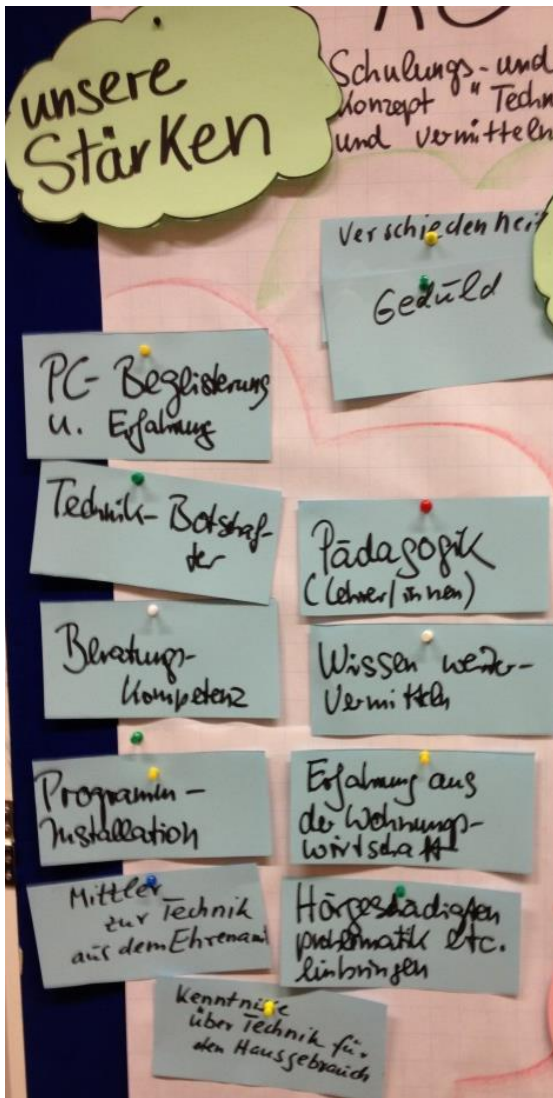 unsere
Stärken
Schulungs- und
Konzept "Techn
und vermitteln
Verschiedenheit
Geduld
PC- Begeisterung
u. Erfahrung
Technik- Botschaf-
ter
Pädagogik
(Lehrer/innen)
Beratungs-
kompetenz
Wissen weiter-
vermitteln
Programm-
Installation
Erfahrung aus
der Wohnungs-
wirtschaft
Mittler
zur Technik
aus dem Ehrenamt
Hörgeschädigten
problematik etc.
einbringen
Kenntnisse
über Technik für
den Hausgebrauch